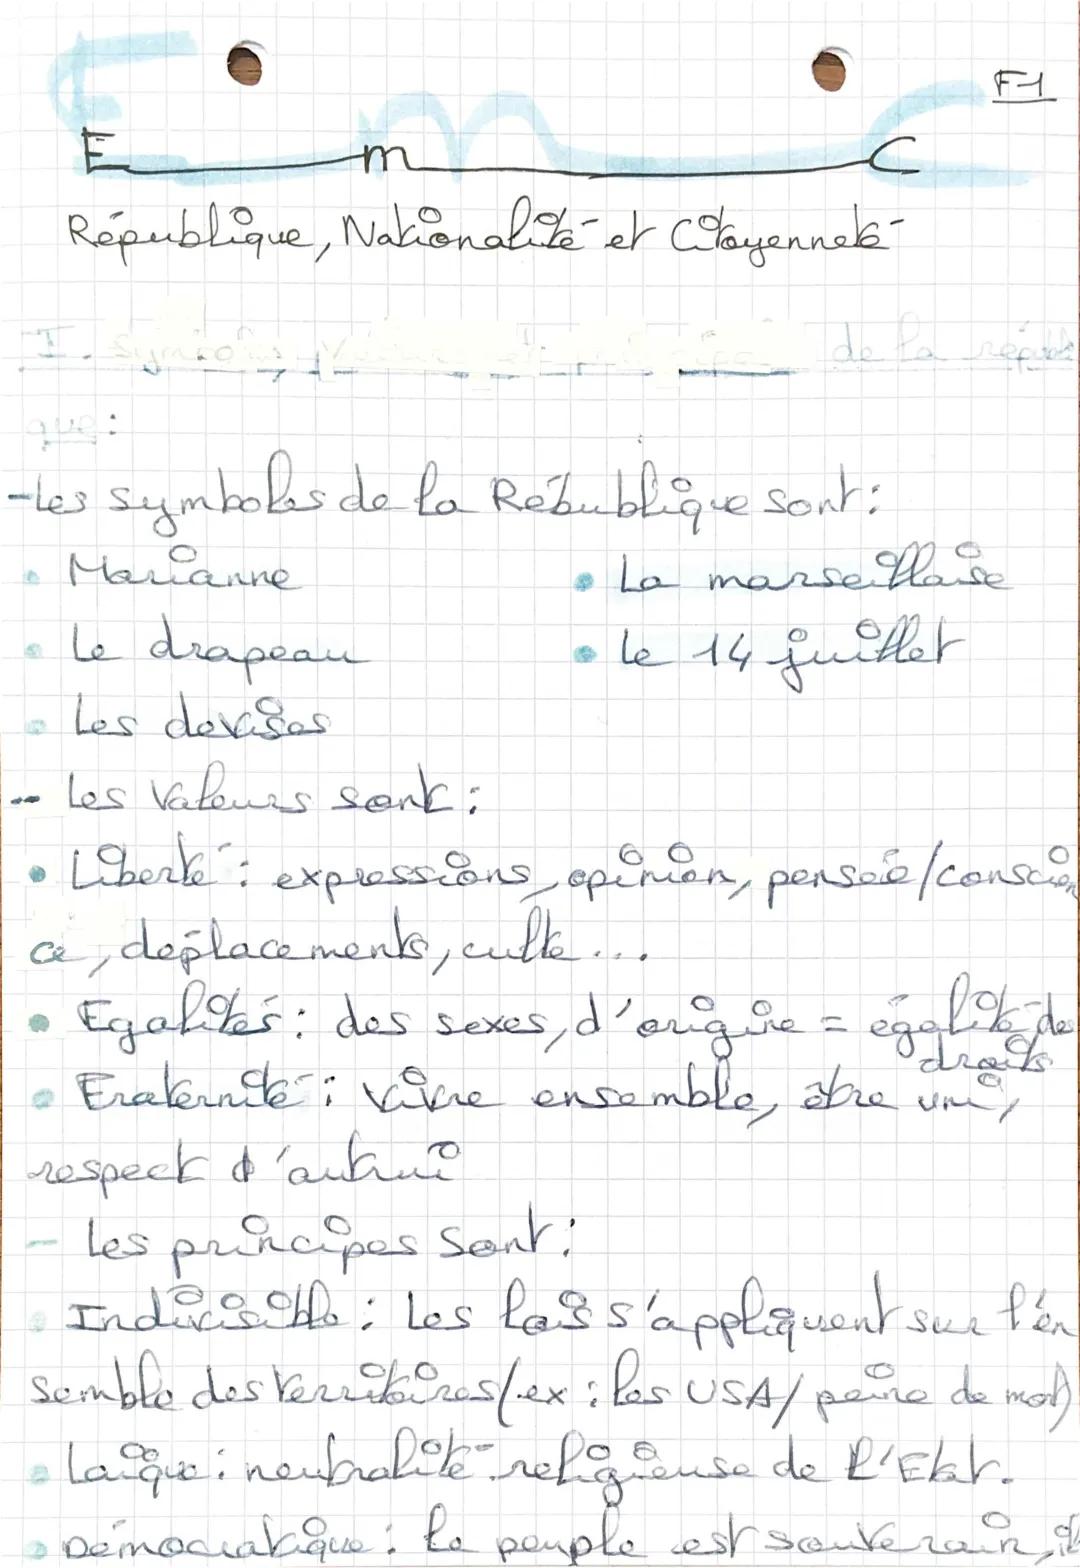 F-1
E m C
République, Nationalité et Citoyenneté
I. Symboles, Valeurs et principes de la républi
que :
- Les symboles de la Rébublique sont :
• Marianne • La marseillaise
• Le drapeau • Le 14 juillet
• Les devises
- Les Valeurs sont :
• Liberté : expressions, opinion, pensée/conscien
ce, déplacements, culte...
• Egalités : des sexes, d'origine = égalité de
droits
• Fraternité : vivre ensemble, être uni,
respect d'autrui
- Les principes sont :
• Indivisible : Les lois s'appliquent sur l'en
semble des territoires (ex : les USA/ peine de mort)
• Laïque : neutralité religieuse de l'Etat.
• Démocratique : le peuple est souverain, il